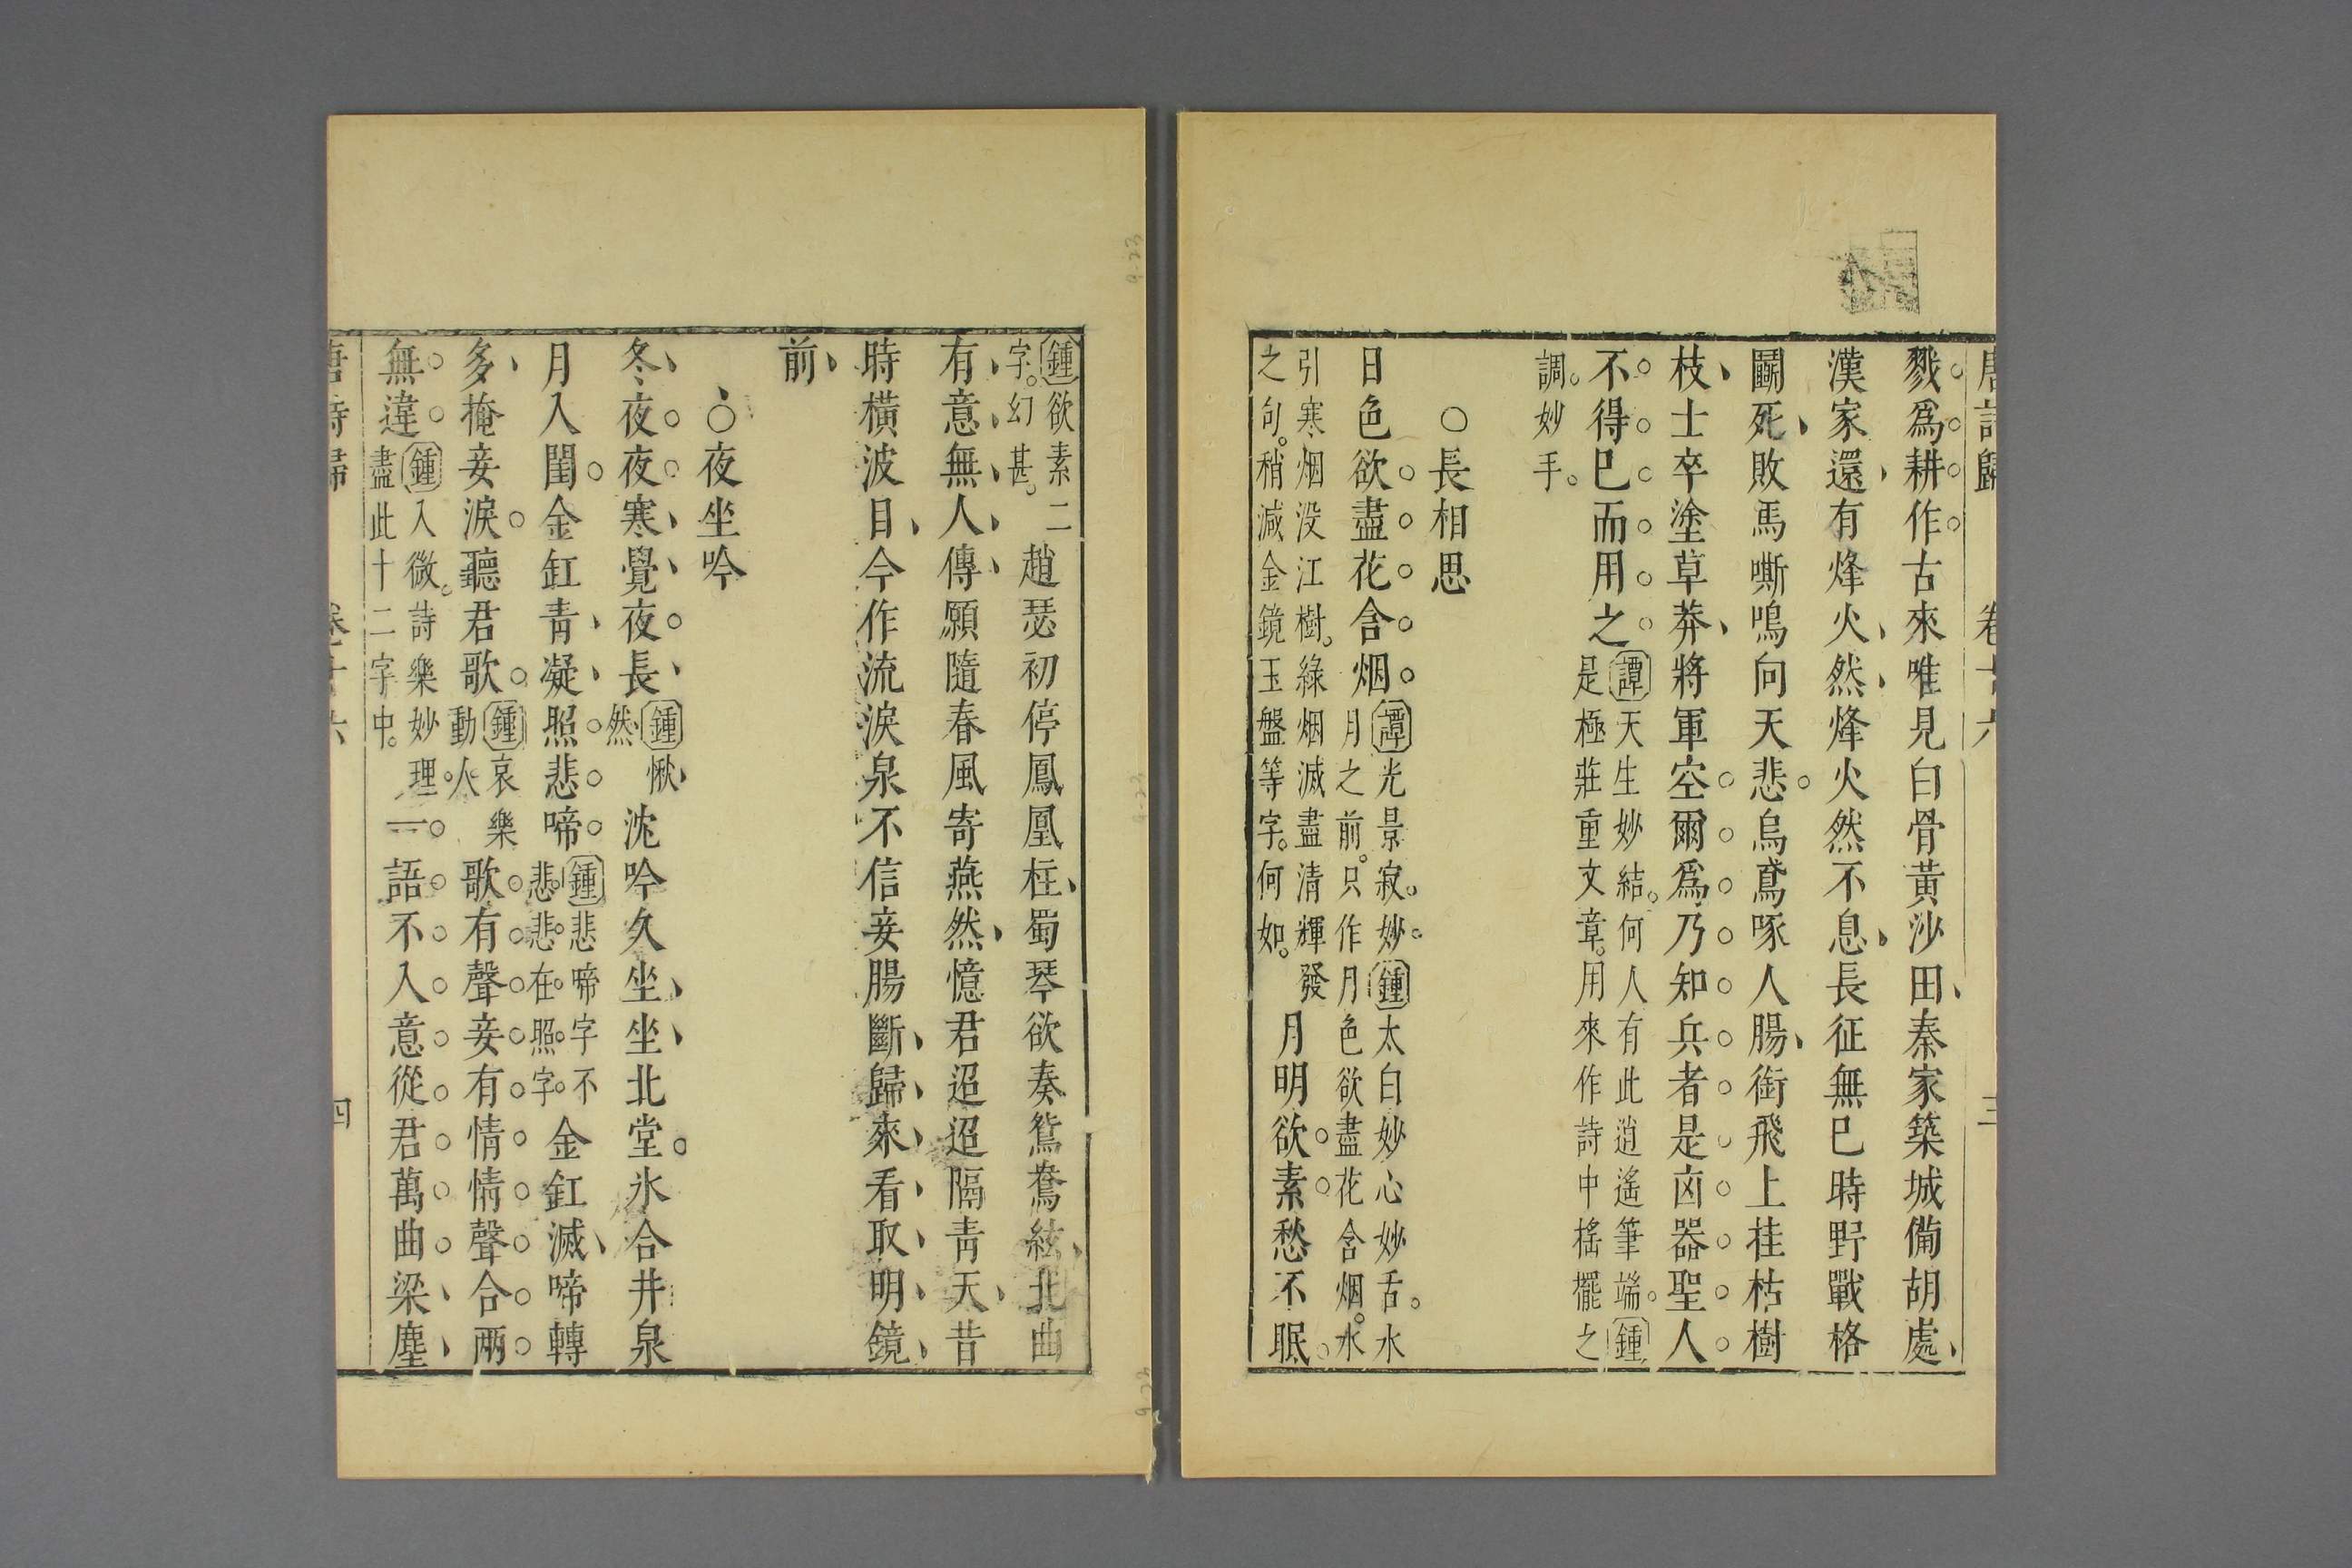 唐詩歸 卷十六 三
戮爲耕作古來唯見白骨黃沙田秦家築城備胡處
漢家還有烽火然烽火然不息長征無已時野戰格
鬭死敗馬嘶鳴向天悲烏鳶啄人腸銜飛上挂枯樹
枝士卒塗草莽將軍空爾爲乃知兵者是凶器聖人
不得已而用之
譚天生妙結。何人有此逍遙筆端。鍾
是極莊重文章。用來作詩中搖擺之
調。妙手。
○長相思
日色欲盡花含烟
譚光景寂。妙。鍾太白妙心妙舌。水
月之前。只作月色欲盡花含烟。水
引寒烟没江樹。綠烟滅盡清輝發
之句。稍減金鏡玉盤等字。何如。
月明欲素愁不眠
鍾欲素二
字。幻甚。
趙瑟初停鳳凰柱蜀琴欲奏鴛鴦絃北曲
有意無人傳願隨春風寄燕然憶君迢迢隔青天昔
時橫波目今作流淚泉不信妾腸斷歸來看取明鏡
前
○夜坐吟
冬夜夜寒覺夜長
鍾愀
然
沈吟久坐坐北堂氷合井泉
月入閨金缸青凝照悲啼
鍾悲啼字不
悲。悲在照字。
金釭滅啼轉
多掩妾淚聽君歌
鍾哀樂
動人
歌有聲妾有情情聲合兩
無違
鍾入微。詩樂妙理
盡此十二字中。
一語不入意從君萬曲梁塵
唐詩歸 卷十六 四